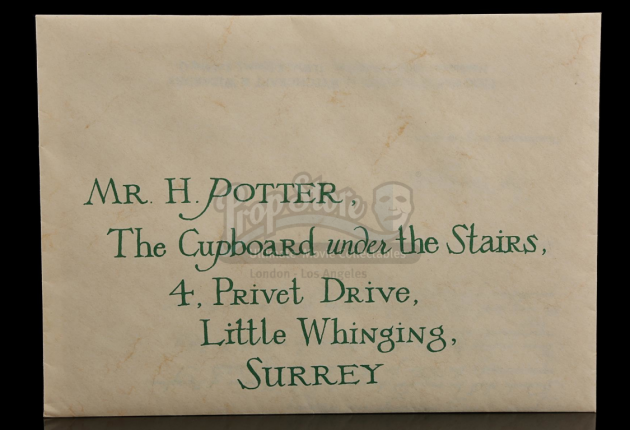 Mr. H. Potter,
The Cupboard under the Stairs,
4, Privet Drive,
Little Whinging,
Surrey
Prop Store
London - Los Angeles